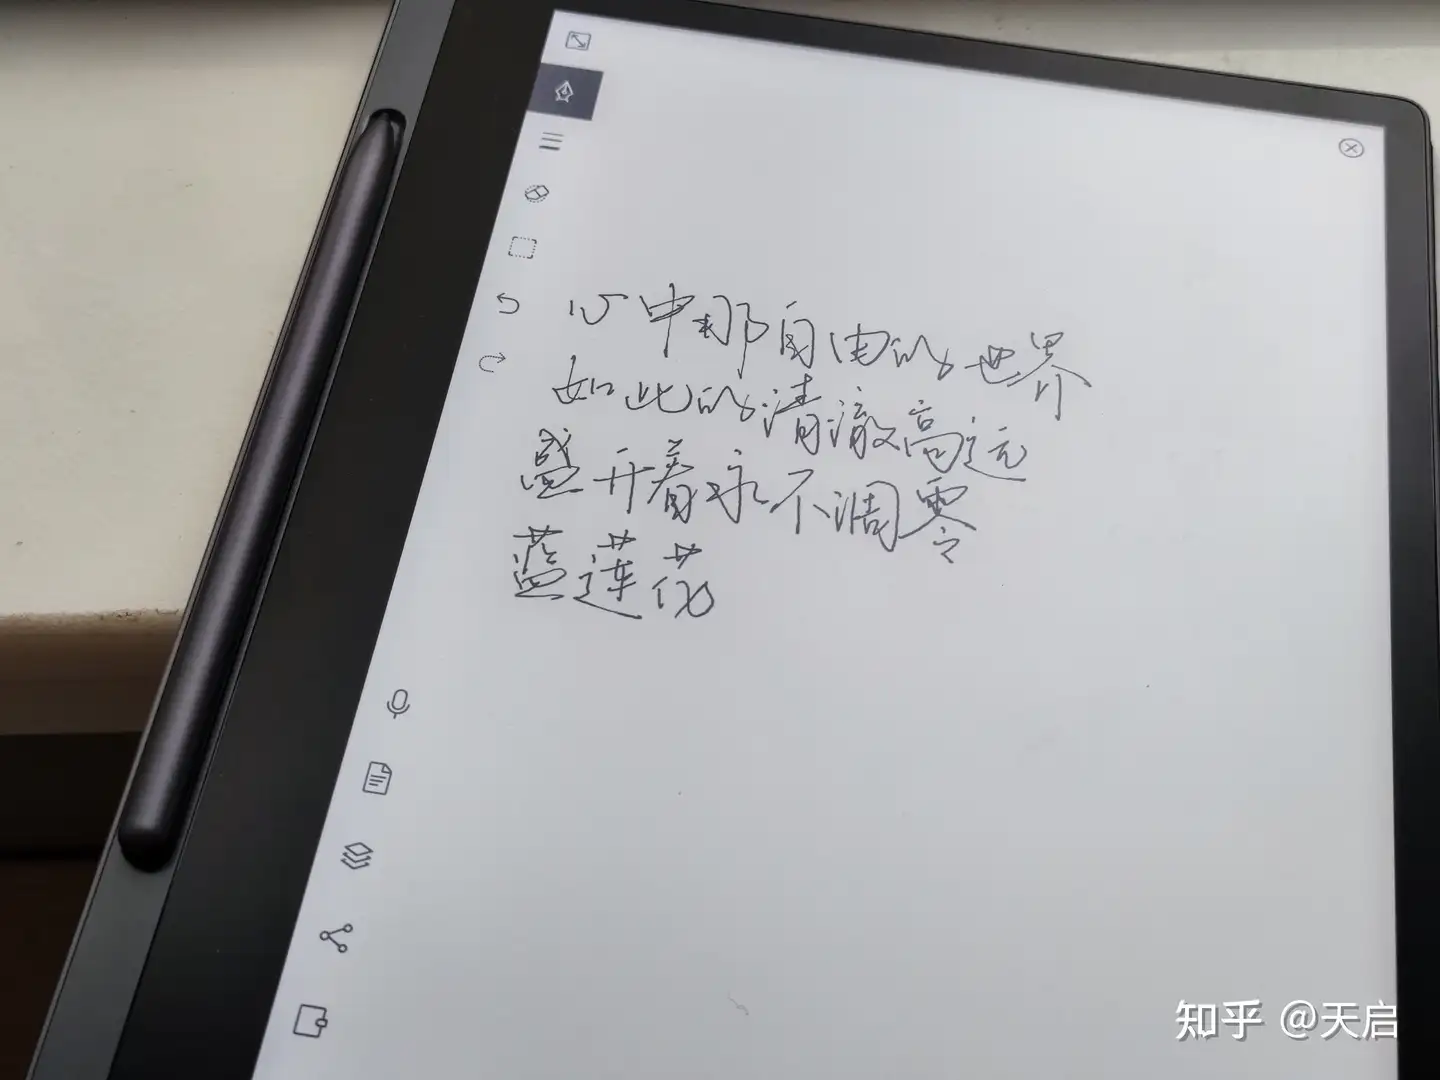 心中那自由的世界
如此的清澈高远
盛开着永不凋零
蓝莲花
知乎 @天启